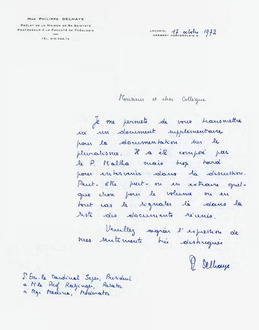 Mgr Philippe Delhaye
Prélat de la Maison de Sa Sainteté
Professeur à la Faculté de Théologie
Louvain, 17 octobre 1972
Monsieur et cher Collègue
Je me permets de vous transmettre
ici un document supplémentaire
pour la documentation sur le
pluralisme. Il a été composé par
le P. mais trop tard
pour intervenir dans la discussion.
Peut-être peut-on en extraire quel-
que chose pour le volume ou en
tout cas le signaler là dans la
liste des documents réunis.
Veuillez agréer l'expression de
mes sentiments très distingués
Ph Delhaye
S. Em. le Cardinal Seper, Président
à Mgr Medina,